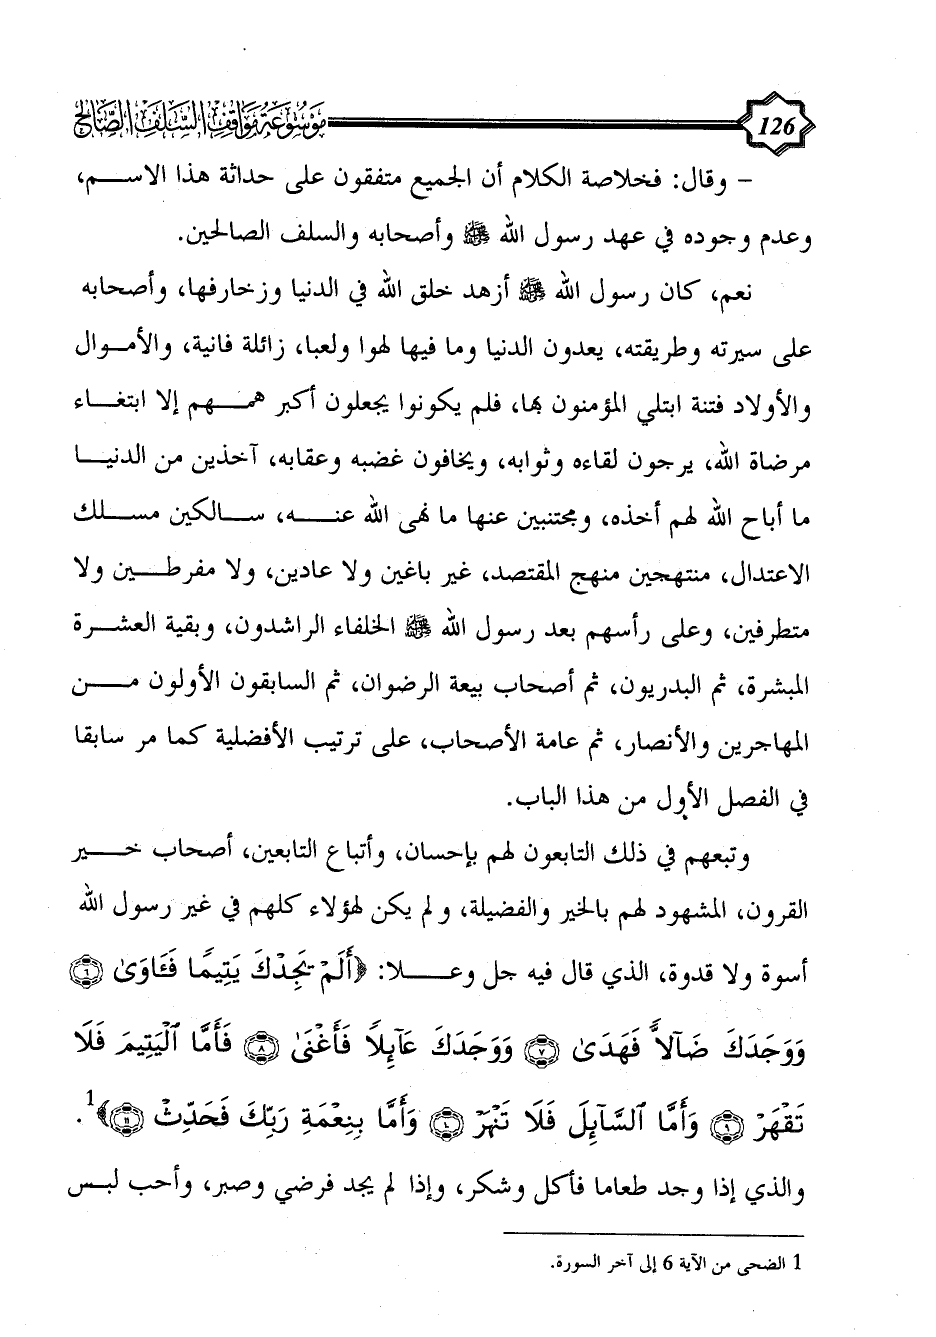 126 موسوعة مواقف السلف الصالح
- وقال: فخلاصة الكلام أن الجميع متفقون على حداثة هذا الاسم،
وعدم وجوده في عهد رسول الله ﷺ وأصحابه والسلف الصالحين.
نعم، كان رسول الله ﷺ أزهد خلق الله في الدنيا وزخارفها، وأصحابه
على سيرته وطريقته، يعدون الدنيا وما فيها لهوا ولعبا، زائلة فانية، والأموال
والأولاد فتنة ابتلي المؤمنون بها، فلم يكونوا يجعلون أكبر همهم إلا ابتغاء
مرضاة الله، يرجون لقاءه وثوابه، ويخافون غضبه وعقابه، آخذين من الدنيا
ما أباح الله لهم أخذه، ومجتنبين عنها ما نهى الله عنه، سالكين مسلك
الاعتدال، منتهجين منهج المقتصد، غير باغين ولا عادين، ولا مفرطين ولا
متطرفين، وعلى رأسهم بعد رسول الله ﷺ الخلفاء الراشدون، وبقية العشرة
المبشرة، ثم البدريون، ثم أصحاب بيعة الرضوان، ثم السابقون الأولون من
المهاجرين والأنصار، ثم عامة الأصحاب، على ترتيب الأفضلية كما مر سابقا
في الفصل الأول من هذا الباب.
وتبعهم في ذلك التابعون لهم بإحسان، وأتباع التابعين، أصحاب خير
القرون، المشهود لهم بالخير والفضيلة، ولم يكن لهؤلاء كلهم في غير رسول الله
أسوة ولا قدوة، الذي قال فيه جل وعلا: ﴿أَلَمْ يَجِدْكَ يَتِيمًا فَـَٔاوَىٰ ٦
وَوَجَدَكَ ضَآلًّا فَهَدَىٰ ٧ وَوَجَدَكَ عَآئِلًا فَأَغْنَىٰ ٨ فَأَمَّا ٱلْيَتِيمَ فَلَا
تَقْهَرْ ٩ وَأَمَّا ٱلسَّآئِلَ فَلَا تَنْهَرْ ١٠ وَأَمَّا بِنِعْمَةِ رَبِّكَ فَحَدِّثْ ١١﴾1.
والذي إذا وجد طعاما فأكل وشكر، وإذا لم يجد فرضي وصبر، وأحب لبس
1 الضحى من الآية 6 إلى آخر السورة.